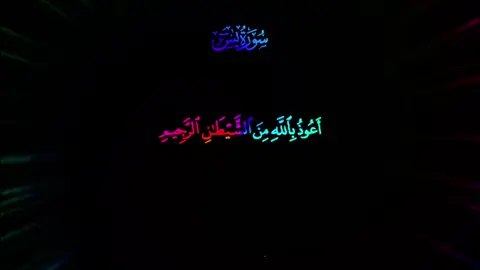 سُورَةُ يسٓ
أَعُوذُ بِٱللَّهِ مِنَ ٱلشَّيْطَانِ ٱلرَّجِيمِ